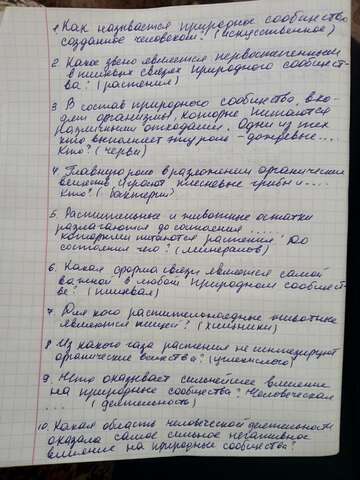 1. Как называется природное сообщество
созданное человеком? (искусственное)
2. Какое звено является первостепенным
в пищевых связях природного сообщест-
ва? (растения)
3. В состав природного сообщества вхо-
дят организмы, которые питаются
различными отходами. Одни из тех
кто выполняет эту роль - дождевые....
Кто? (черви)
4. Главную роль в разложении органических
веществ играют плесневые грибы и....
Кто? (бактерии)
5. Растительные и животные остатки
разлагаются до состояния ......
которыми питаются растения. До
состояния чего? (минералов)
6. Какая форма связи является самой
важной в любом природном сообщест-
ве? (пищевая)
7. Для кого растительноядные животные
являются пищей? (хищники)
8. Из какого газа растения не синтезируют
органические вещества? (углекислого)
9. Что оказывает сильнейшее влияние
на природные сообщества? Человеческая
.... (деятельность)
10. Какая область человеческой деятельности
оказала самое сильное негативное
влияние на природные сообщества?